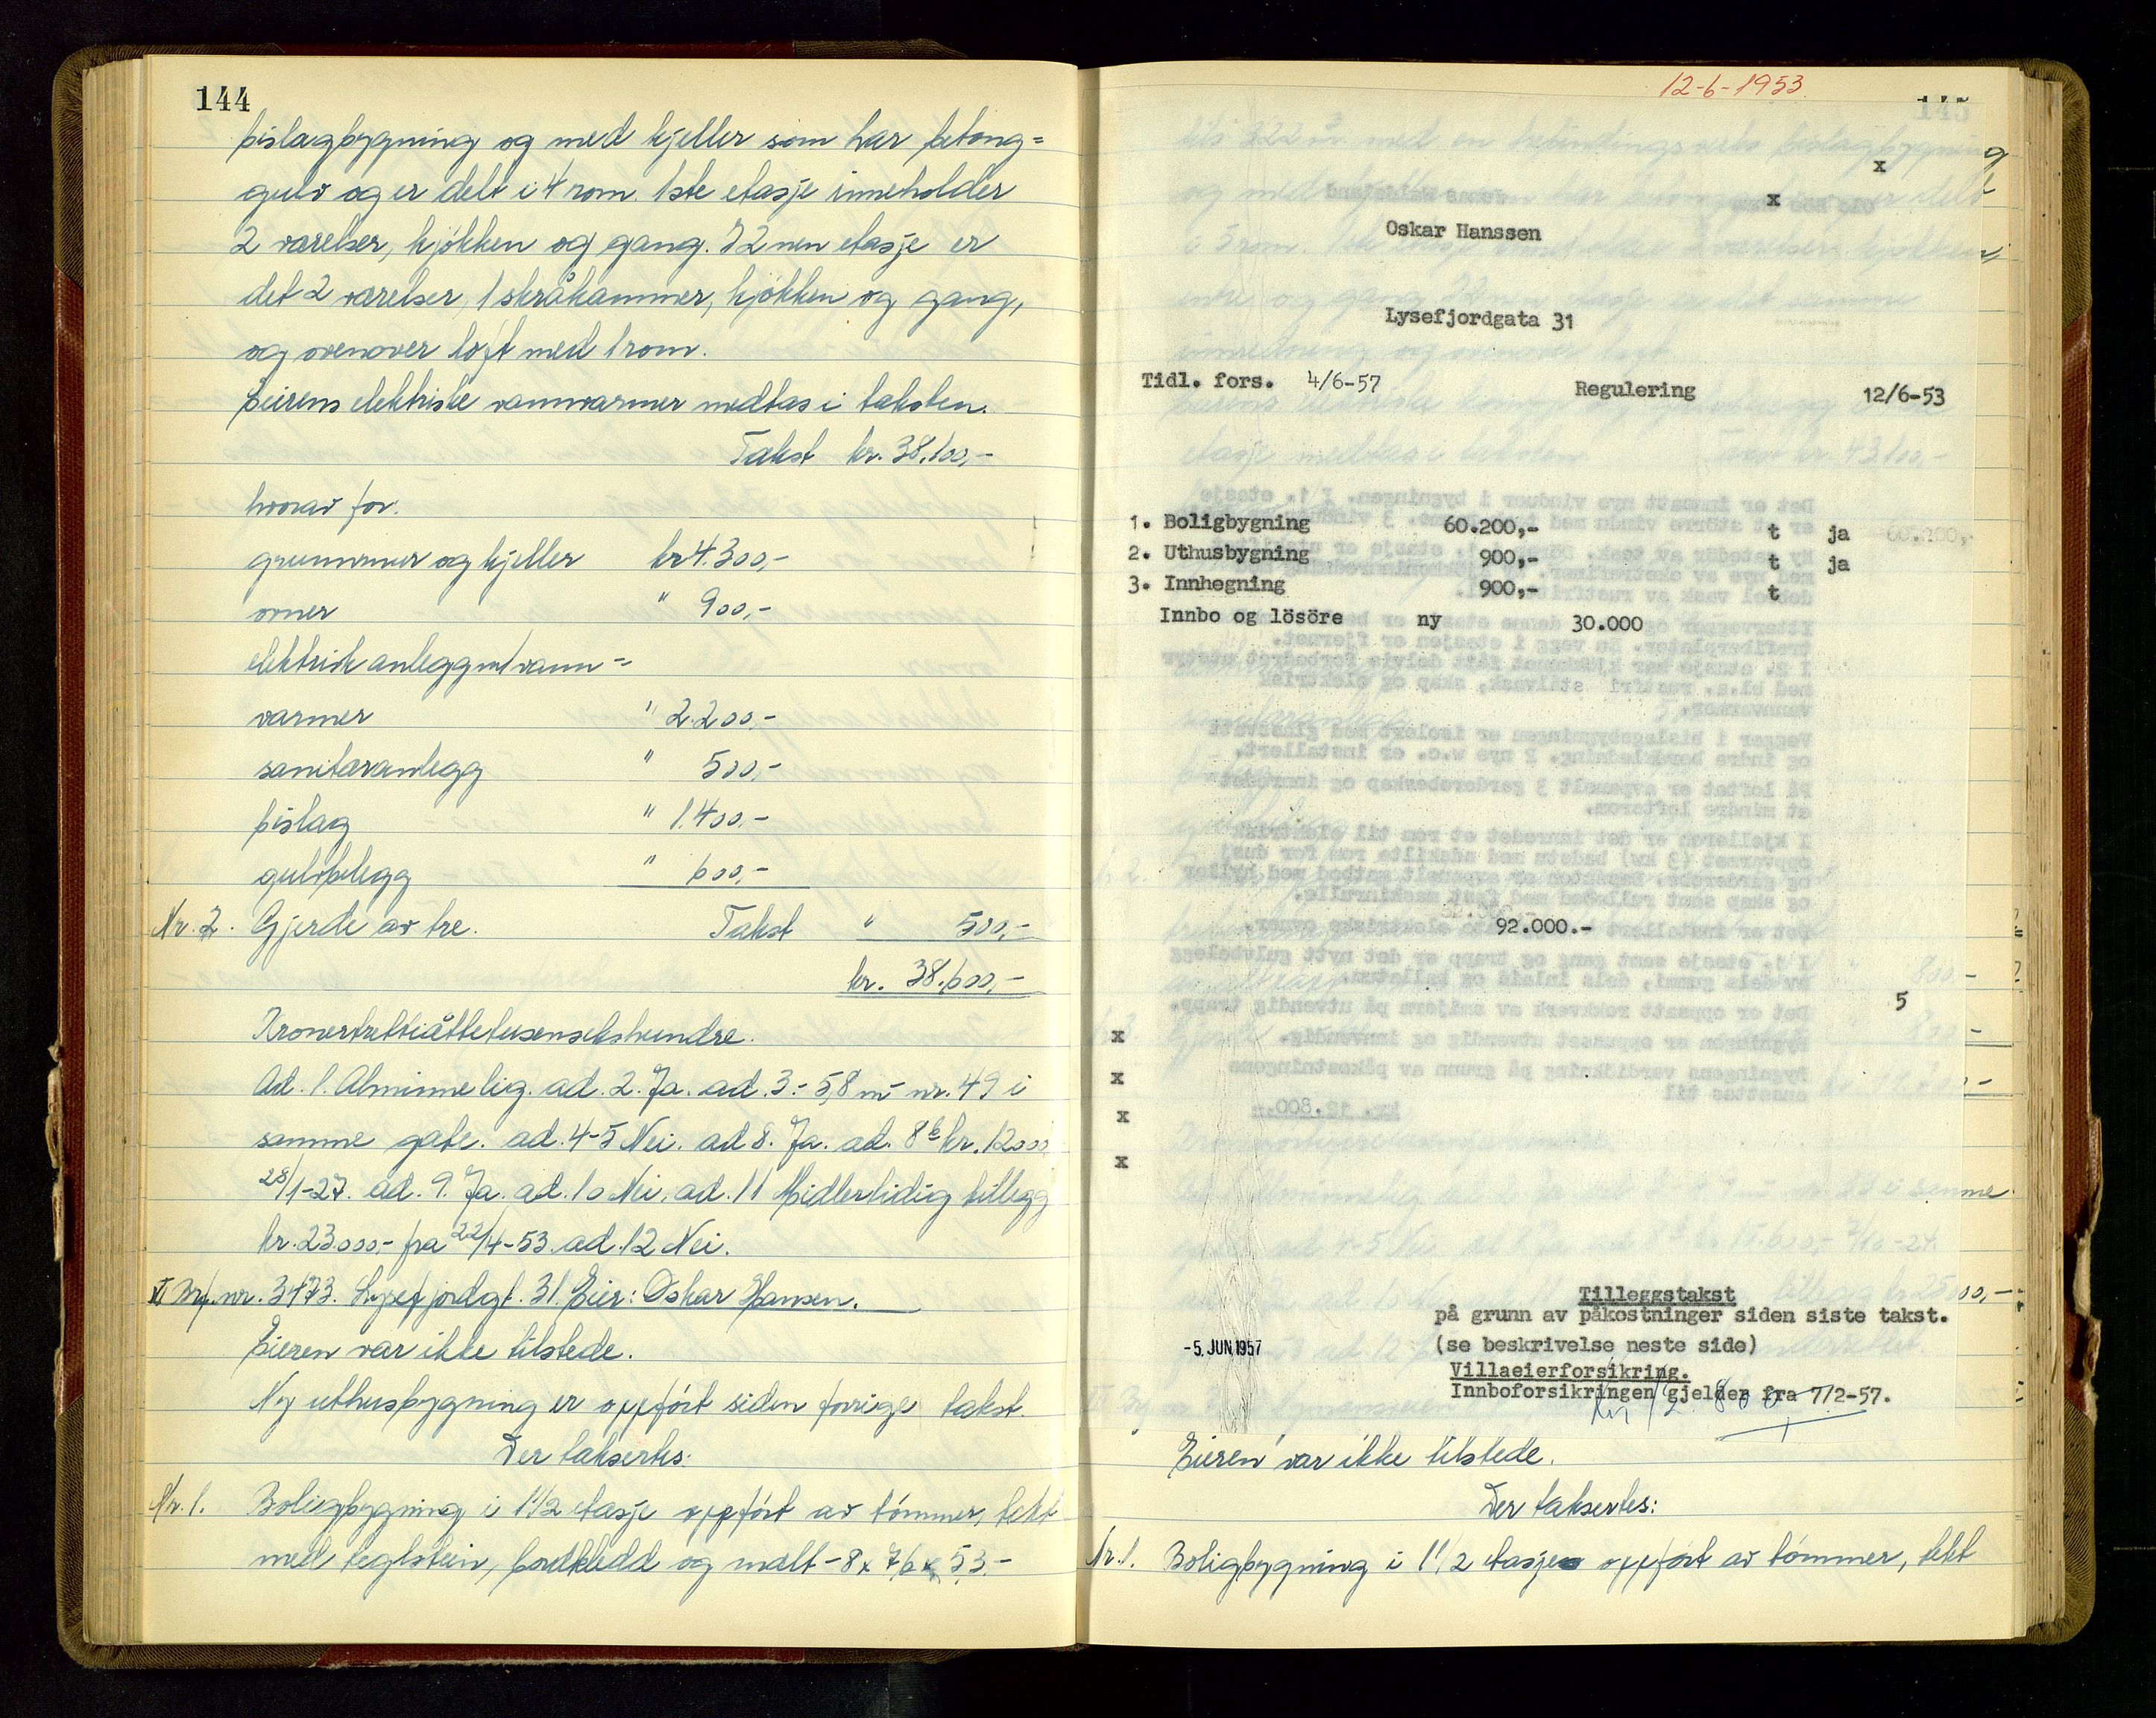 144
bislagbygning og med kjeller som har betong=
gulv og er delt i 4 rom. 1ste etasje inneholder
2 værelser, kjøkken og gang. I 2nen etasje er
det 2 værelser, 1 skråkammer, kjøkken og gang,
og ovenover loft med 1 rom.
Eierens elektriske vannvarmer medtas i taksten.
Takst kr. 38.100,-
hvorav for:
grunnmur og kjeller kr 4.300,-
ovner " 900,-
elektrisk anlegg m/vann-
varmer " 2.200,-
sanitæranlegg " 500,-
bislag " 1.400,-
gulvbelegg " 600,-
Nr. 2. Gjerde av tre. Takst " 500,-
kr. 38.600,-
Kronertrettiåttetusensekshundre.
Ad. 1. Alminnelig. ad. 2. Ja. ad. 3.- 5,8 m nr. 49 i
samme gate. ad. 4-5 Nei. ad 8. Ja. ad. 8b kr. 12000,
28/1-27. ad. 9. Ja. ad. 10 Nei. ad. 11 Midlertidig tillegg
kr. 23.000,- fra 22/4-53. ad. 12 Nei.
Brf. nr. 3473. Lysefjordgt. 31. Eier: Oskar Hansen.
Eieren var ikke tilstede.
Ny uthusbygning er oppført siden forrige takst.
Der taksertes:
Nr. 1. Boligbygning i 1 1/2 etasje oppført av tømmer, tekt
med teglstein, bordkledd og malt - 8 x 7,6 x 5,3.-
12-6-1953.
145
x
x
Oskar Hanssen
Lysefjordgata 31
Tidl. fors. 4/6-57 Regulering 12/6-53
1. Boligbygning 60.200,- t ja
2. Uthusbygning 900,- t ja
3. Innhegning 900,- t
Innbo og lösöre ny 30.000
92.000.-
5
x
x
x
x
Tilleggstakst
på grunn av påkostninger siden siste takst.
-5. JUN 1957 (se beskrivelse neste side)
Villaeierforsikring.
Innboforsikringen gjelder fra 7/2-57.
kr 12.800
Eieren var ikke tilstede.
Der taksertes:
Nr. 1. Boligbygning i 1 1/2 etasje oppført av tømmer, tekt